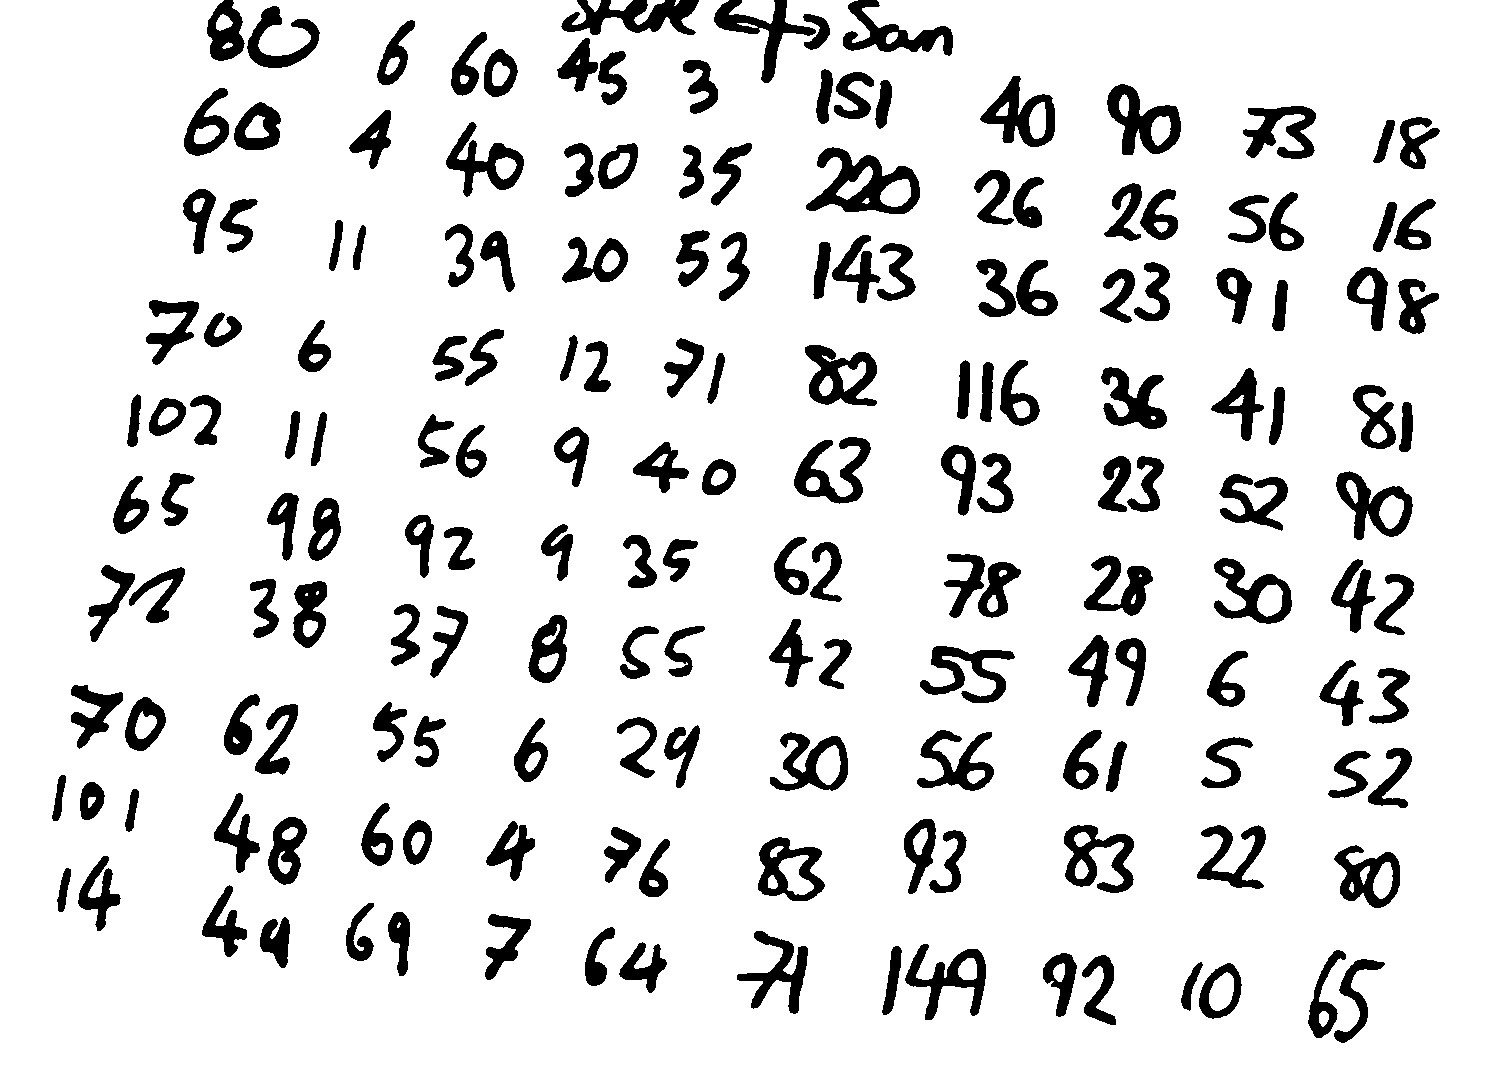 Steve ↔ Sam
80 6 60 45 3 151 40 90 73 18
60 4 40 30 35 220 26 26 56 16
95 11 39 20 53 143 36 23 91 98
70 6 55 12 71 82 116 36 41 81
102 11 56 9 40 63 93 23 52 90
65 98 92 9 35 62 78 28 30 42
72 38 37 8 55 42 55 49 6 43
70 62 55 6 29 30 56 61 5 52
101 48 60 4 76 83 93 83 22 80
14 49 69 7 64 71 149 92 10 65